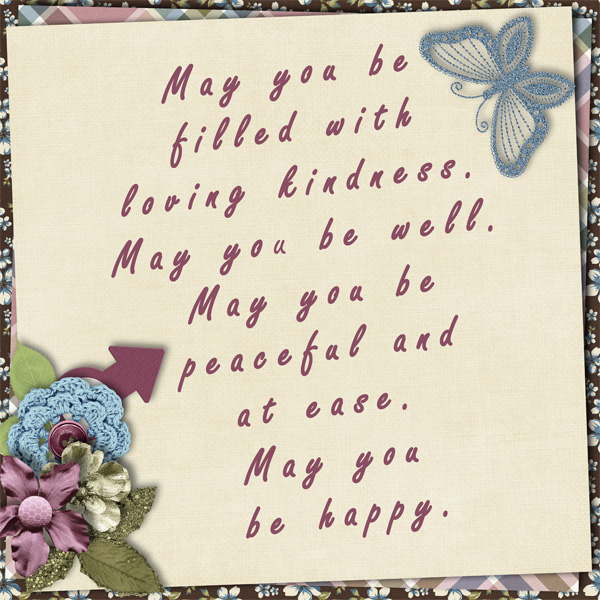 May you be
filled with
loving kindness.
May you be well.
May you be
peaceful and
at ease.
May you
be happy.